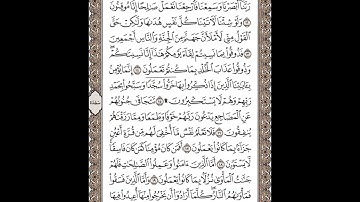 رَبَّنَآ أَبْصَرْنَا وَسَمِعْنَا فَٱرْجِعْنَا نَعْمَلْ صَٰلِحًا إِنَّا مُوقِنُونَ
١٢ وَلَوْ شِئْنَا لَءَاتَيْنَا كُلَّ نَفْسٍ هُدَىٰهَا وَلَٰكِنْ حَقَّ
ٱلْقَوْلُ مِنِّى لَأَمْلَأَنَّ جَهَنَّمَ مِنَ ٱلْجِنَّةِ وَٱلنَّاسِ أَجْمَعِينَ
١٣ فَذُوقُوا۟ بِمَا نَسِيتُمْ لِقَآءَ يَوْمِكُمْ هَٰذَآ إِنَّا نَسِينَٰكُمْ
وَذُوقُوا۟ عَذَابَ ٱلْخُلْدِ بِمَا كُنتُمْ تَعْمَلُونَ ١٤ إِنَّمَا يُؤْمِنُ
بِـَٔايَٰتِنَا ٱلَّذِينَ إِذَا ذُكِّرُوا۟ بِهَا خَرُّوا۟ سُجَّدًا وَسَبَّحُوا۟ بِحَمْدِ
رَبِّهِمْ وَهُمْ لَا يَسْتَكْبِرُونَ ۩ ١٥ تَتَجَافَىٰ جُنُوبُهُمْ
عَنِ ٱلْمَضَاجِعِ يَدْعُونَ رَبَّهُمْ خَوْفًا وَطَمَعًا وَمِمَّا رَزَقْنَٰهُمْ
يُنفِقُونَ ١٦ فَلَا تَعْلَمُ نَفْسٌ مَّآ أُخْفِىَ لَهُم مِّن قُرَّةِ أَعْيُنٍ
جَزَآءًۢ بِمَا كَانُوا۟ يَعْمَلُونَ ١٧ أَفَمَن كَانَ مُؤْمِنًا كَمَن كَانَ فَاسِقًا
لَّا يَسْتَوُۥنَ ١٨ أَمَّا ٱلَّذِينَ ءَامَنُوا۟ وَعَمِلُوا۟ ٱلصَّٰلِحَٰتِ فَلَهُمْ
جَنَّٰتُ ٱلْمَأْوَىٰ نُزُلًۢا بِمَا كَانُوا۟ يَعْمَلُونَ ١٩ وَأَمَّا ٱلَّذِينَ فَسَقُوا۟
فَمَأْوَىٰهُمُ ٱلنَّارُ كُلَّمَآ أَرَادُوٓا۟ أَن يَخْرُجُوا۟ مِنْهَآ أُعِيدُوا۟ فِيهَا